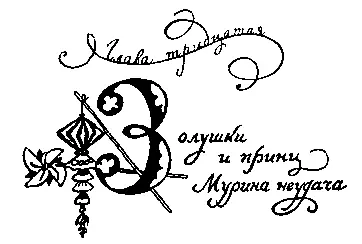 Глава тридцатая
Золушки
и принц
Мурина неудача